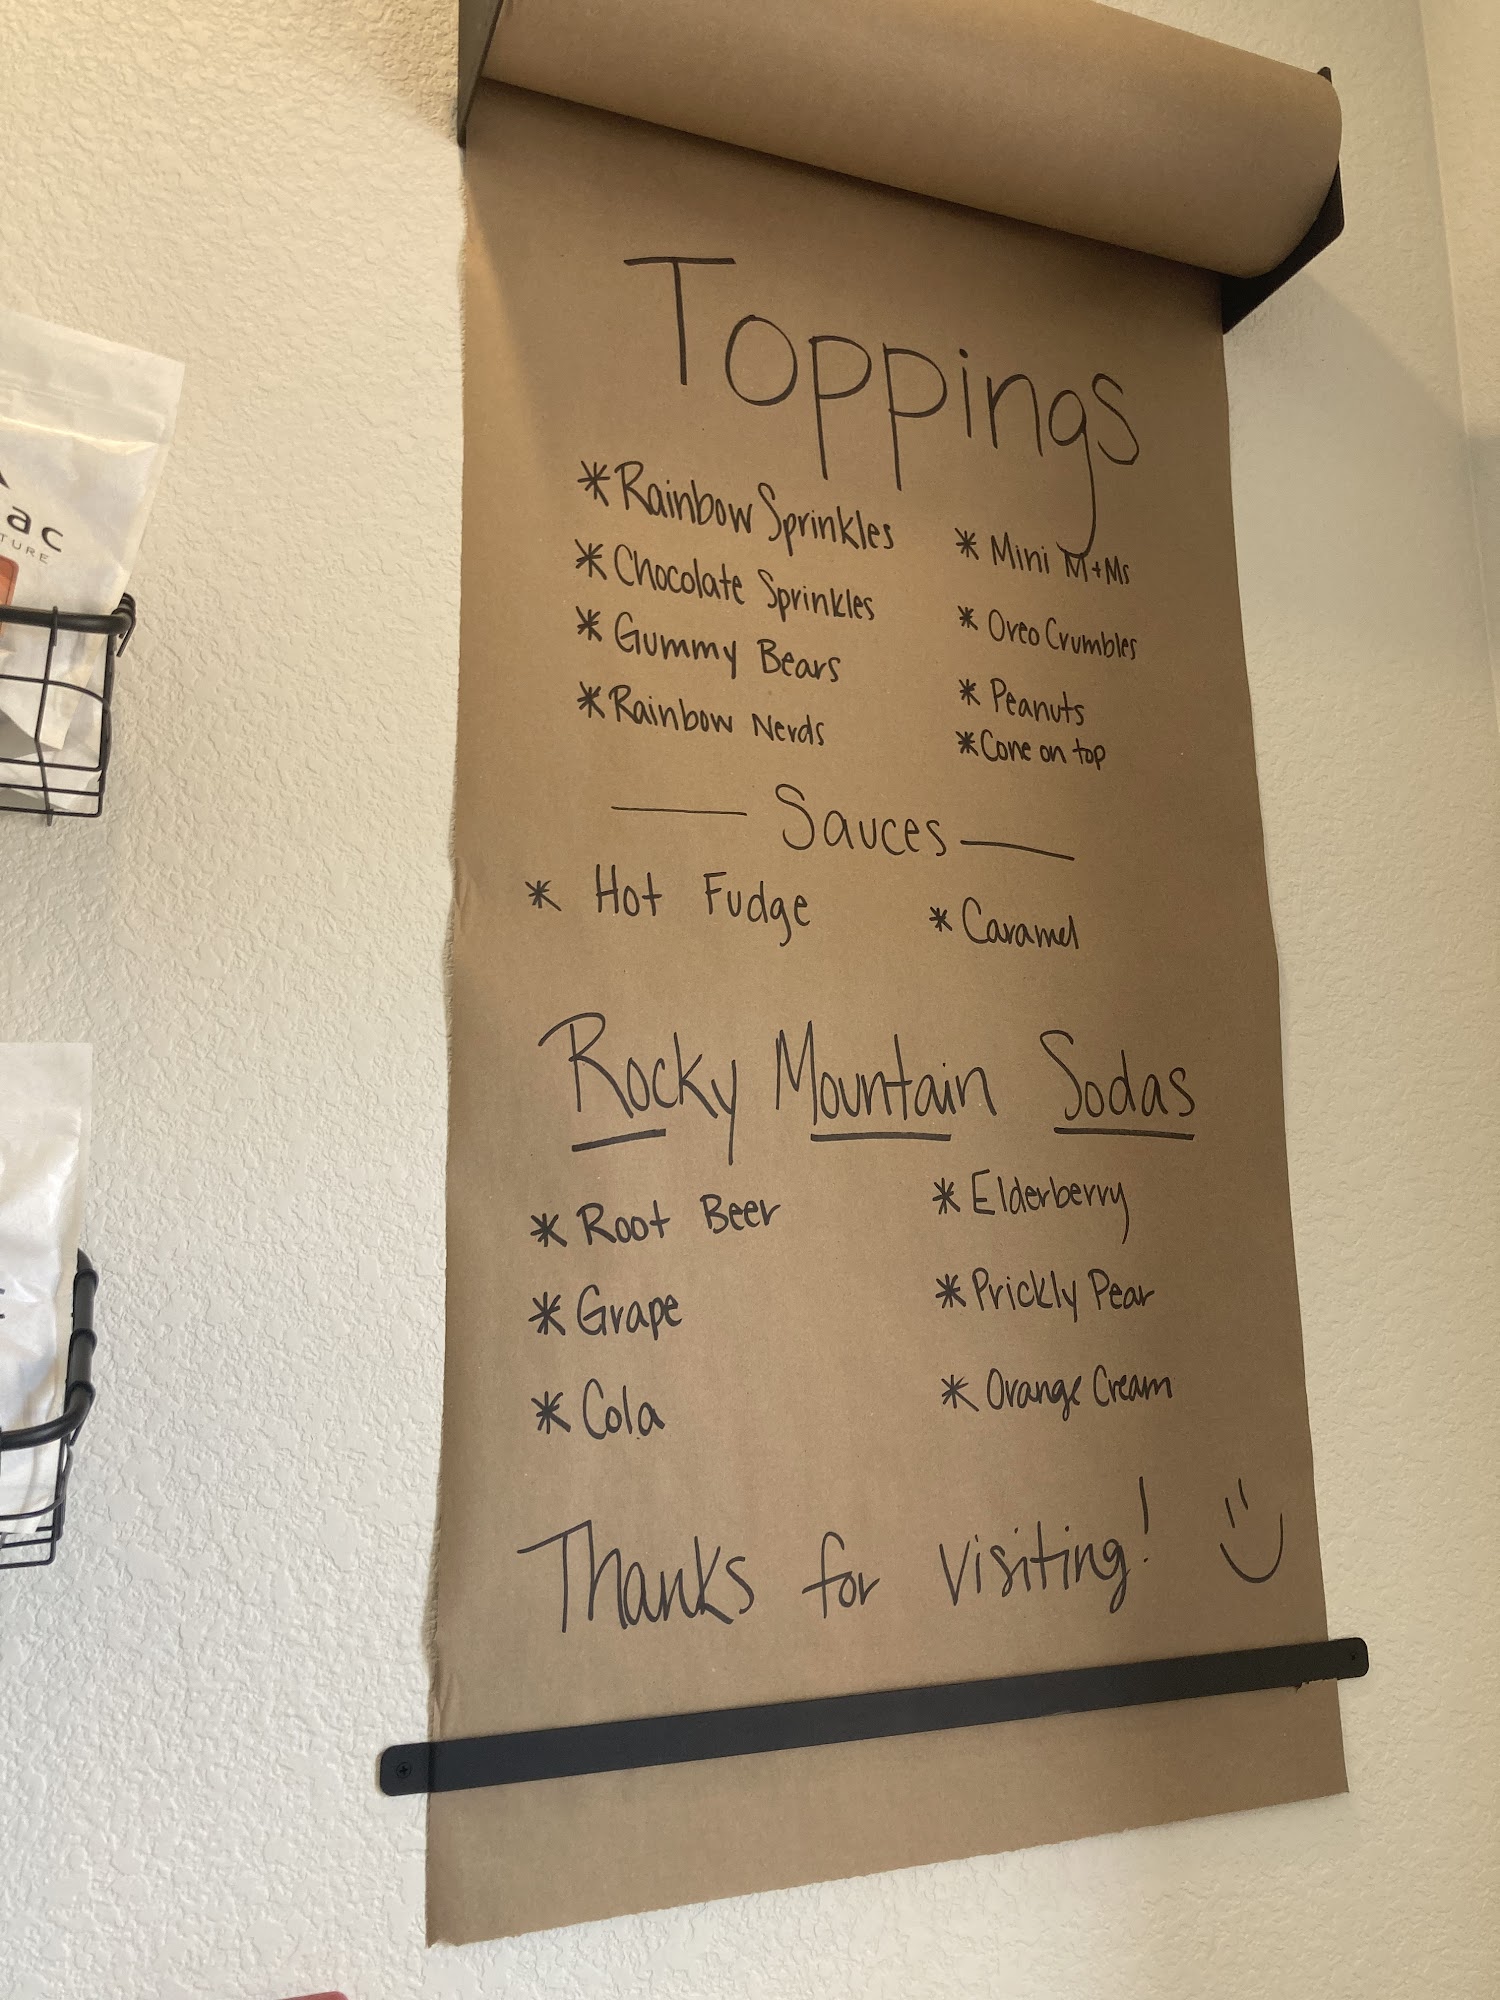 Toppings
* Rainbow Sprinkles
* Chocolate Sprinkles
* Gummy Bears
* Rainbow Nerds
* Mini M+Ms
* Oreo Crumbles
* Peanuts
* Cone on top
Sauces
* Hot Fudge
* Caramel
Rocky Mountain Sodas
* Root Beer
* Grape
* Cola
* Elderberry
* Prickly Pear
* Orange Cream
Thanks for visiting!